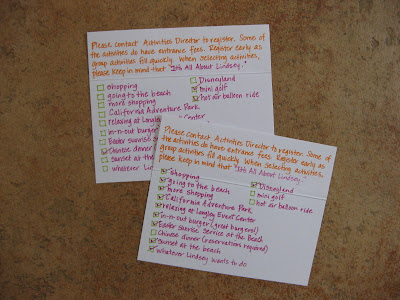 Please contact Activities Director to register. Some of
the activities do have entrance fees. Register early as
group activities fill quickly. When selecting activities,
please keep in mind that "It's All About Lindsey."
shopping
going to the beach
more shopping
California Adventure Park
relaxing at Langley Center
in-n-out burger
Easter sunrise
Chinese dinner
Sunset at the
whatever Lindsey
Disneyland
mini golf
hot air balloon ride
Please Contact Activities Director to register. Some of
the activities do have entrance fees. Register early as
group activities fill quickly. When selecting activities,
please keep in mind that "It's All About Lindsey."
shopping
going to the beach
more shopping
California Adventure Park
relaxing at Langley Event Center
in-n-out burger (great burgers!)
Easter Sunrise Service at the Beach
Chinese dinner (reservations required)
Sunset at the beach
whatever Lindsey wants to do
Disneyland
mini golf
hot air balloon ride